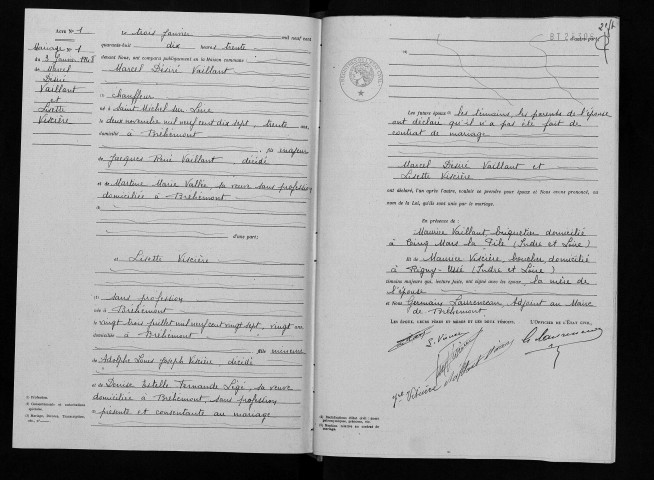 Acte N° 1
Mariage N° 1
du 3 Janvier 1948
de Marcel
Désiré
Vaillant
et
Lisette
Viscière
Le trois janvier mil neuf cent
quarante-huit dix heures trente
devant Nous, ont comparu publiquement en la Maison commune :
Marcel Désiré Vaillant
(1) chauffeur
né à Saint Michel sur Loire
le deux novembre mil neuf cent dix sept, trente ans,
domicilié à Bréhémont
fils majeur
de Jacques René Vaillant, décédé
et de Martine Marie Vallée, sa veuve sans profession
domiciliée à Bréhémont
d'une part;
et Lisette Viscière
(1) sans profession
née à Bréhémont
le vingt trois juillet mil neuf cent vingt sept, vingt ans
domiciliée à Bréhémont
fille mineure
de Adolphe Louis Joseph Viscière, décédé
et de Denise Estelle Fernande Légé, sa veuve
domiciliée à Bréhémont, sans profession
présente et consentante au mariage
(1) Profession.
d'autre part;
Les futurs époux les témoins, les parents de l'épouse
ont déclaré qu'il n'a pas été fait de
contrat de mariage
Marcel Désiré Vaillant et
Lisette Viscière
ont déclaré, l'un après l'autre, vouloir se prendre pour époux et Nous avons prononcé, au
nom de la Loi, qu'ils sont unis par le mariage.
En présence de :
Maurice Vaillant, briquetier domicilié
à Cinq Mars la Pile (Indre et Loire)
Et de Maurice Viscière, boucher, domicilié
à Rigny-Ussé (Indre et Loire)
témoins majeurs qui, lecture faite, ont signé avec les époux, la mère de
l'épouse
et Nous Germain Laurenceau, Adjoint au Maire
de Bréhémont
LES ÉPOUX, LEURS PÈRES ET MÈRES ET LES DEUX TÉMOINS, L'OFFICIER DE L'ÉTAT CIVIL,